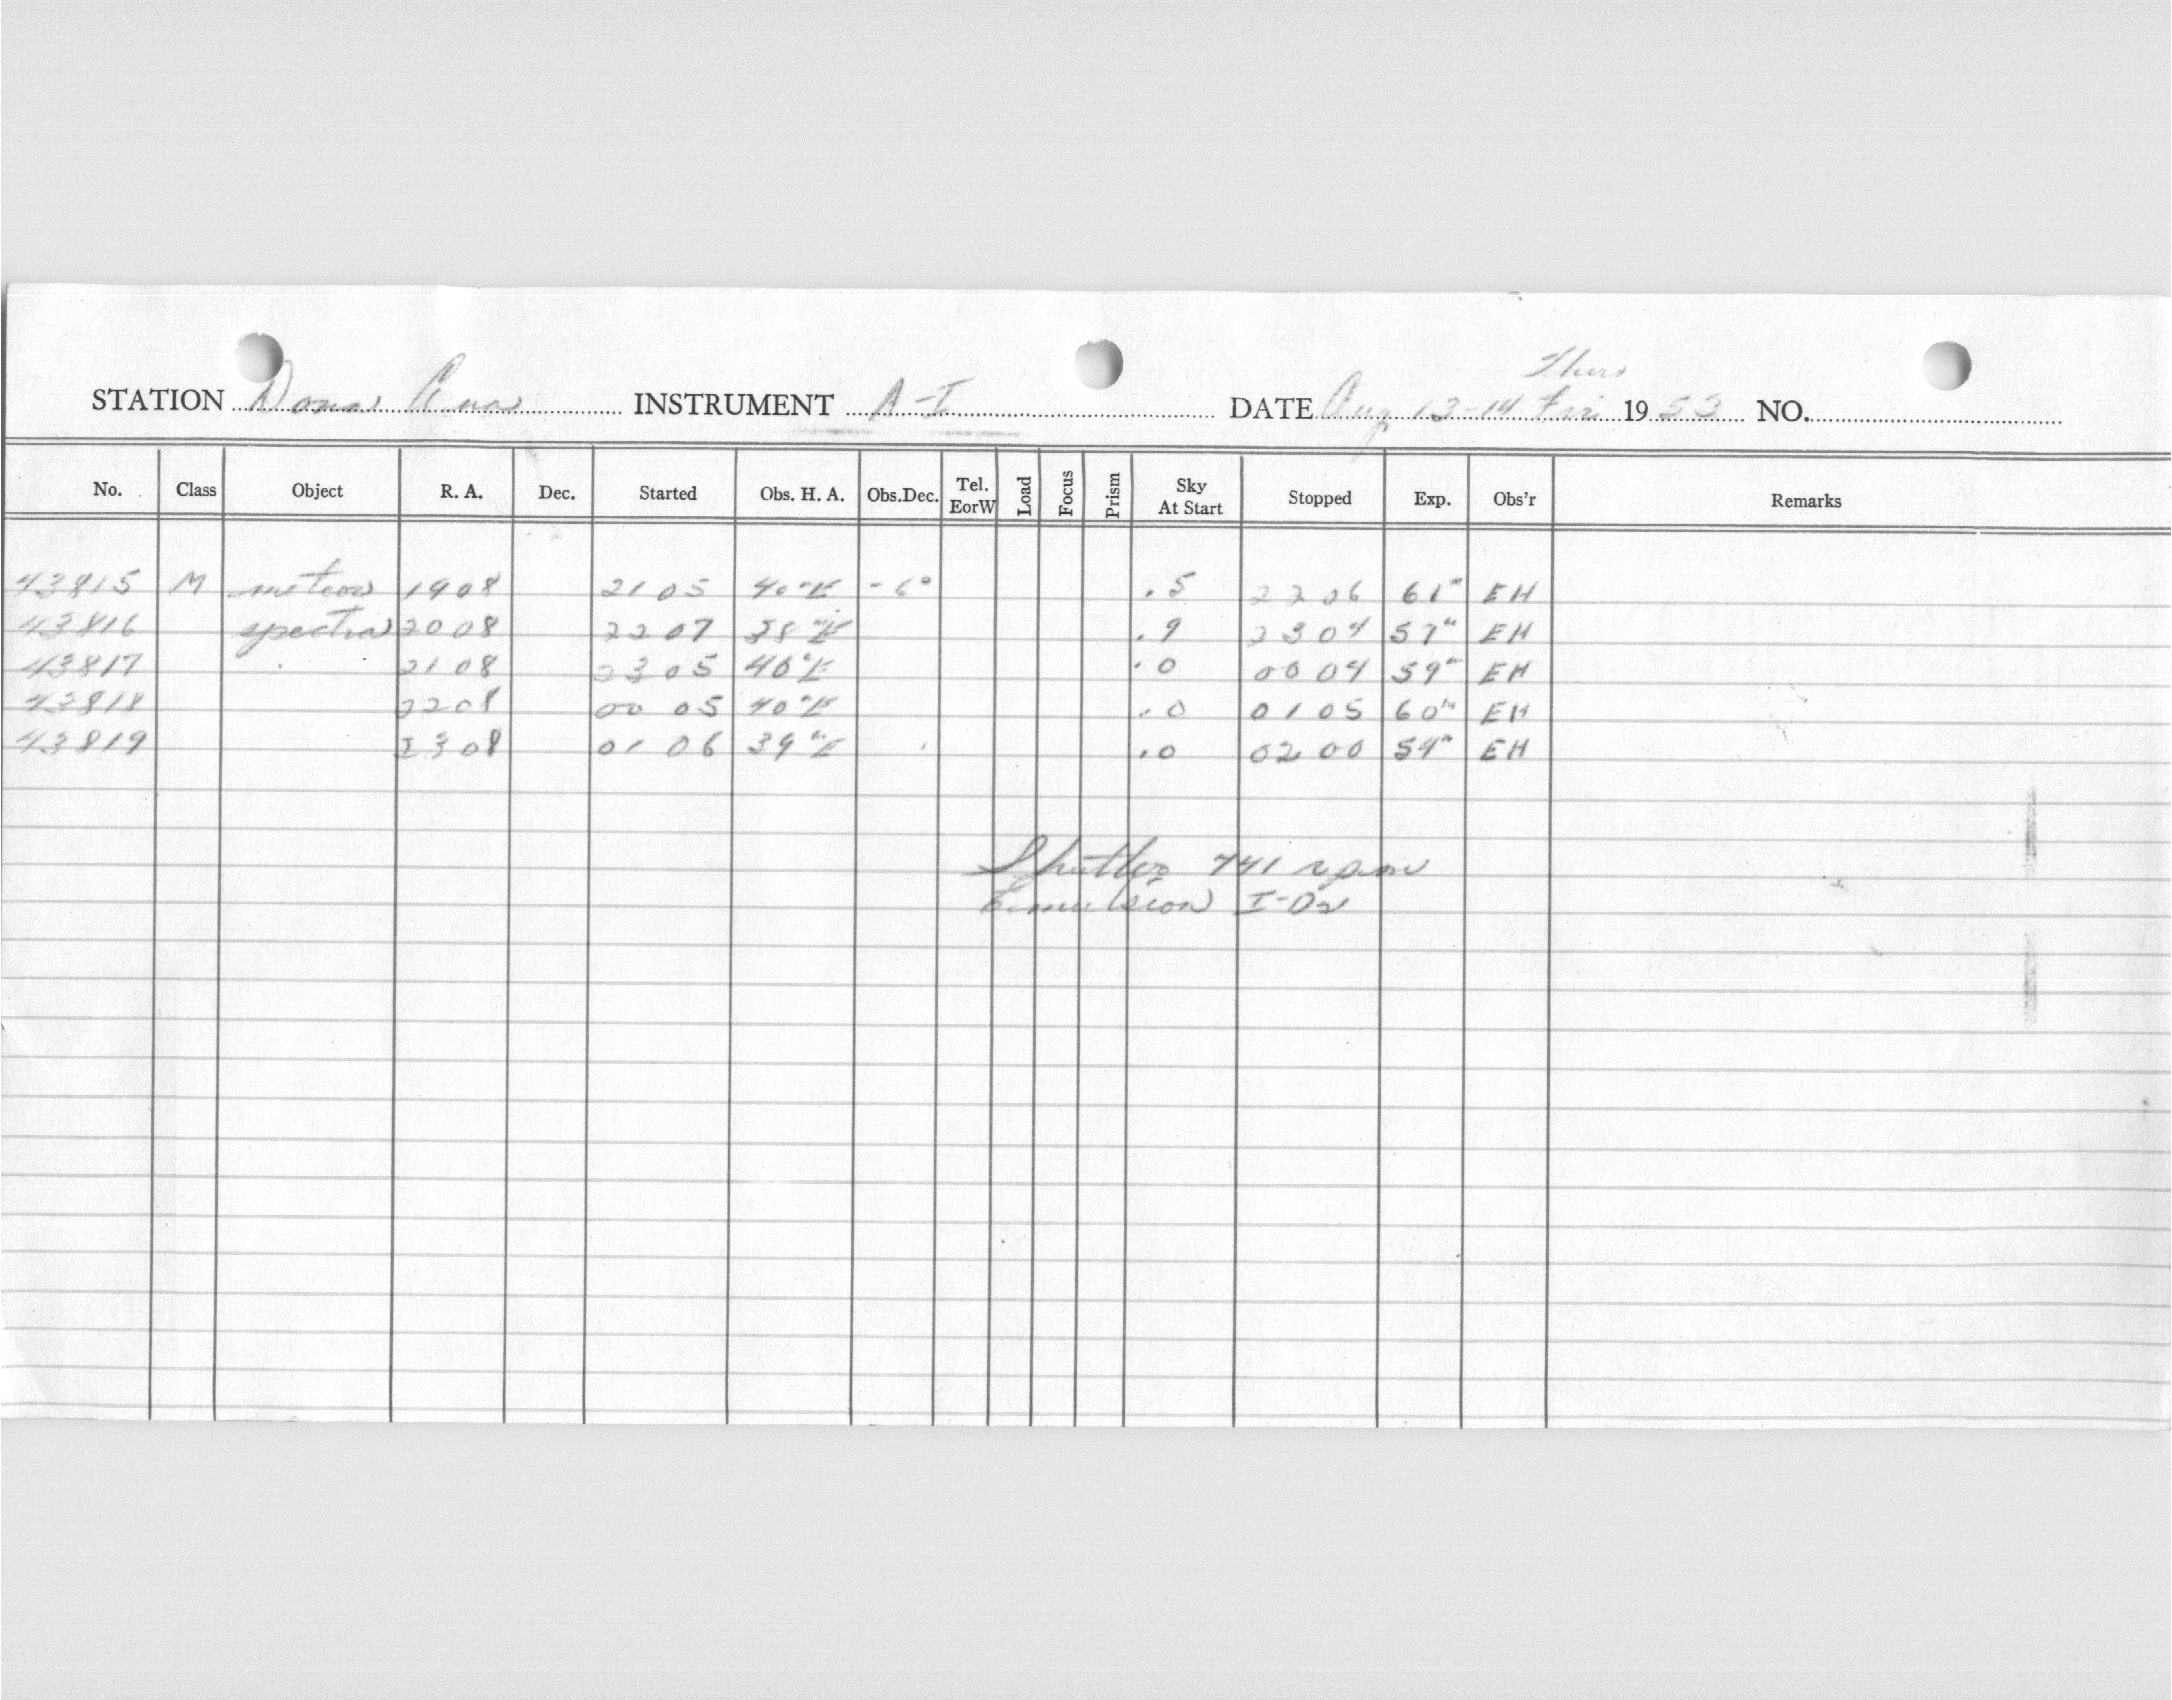 Thurs
STATION Dona Ana INSTRUMENT A-I DATE Aug 13-14 Fri 1953 NO.
No. Class Object R. A. Dec. Started Obs. H. A. Obs.Dec. Tel. EorW Load Focus Prism Sky At Start Stopped Exp. Obs'r Remarks
43815 M meteor 1908 21 05 40ᵐE -6° .5 22 06 61ᵐ EH
43816 spectra 2008 22 07 38ᵐE .9 23 04 57ᵐ EH
43817 2108 23 05 40ᵐE .0 00 04 59ᵐ EH
43818 2208 00 05 40ᵐE .0 01 05 60ᵐ EH
43819 2308 01 06 39ᵐE .0 02 00 54ᵐ EH
Shutter 741 rpm
Emulsion I-O